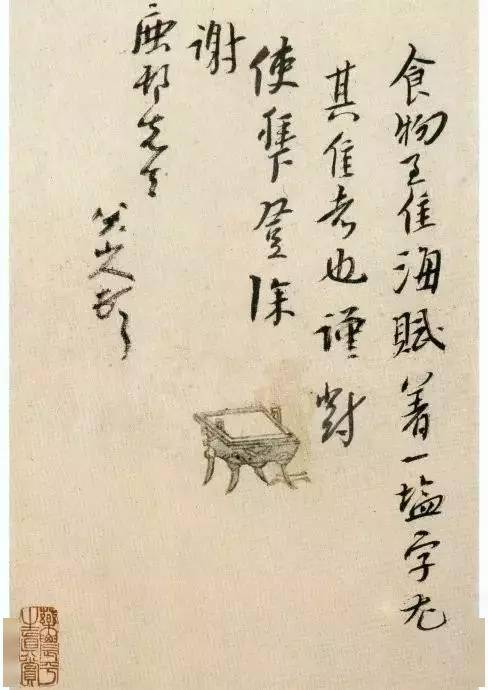 食物至佳海賦著一塩字尤
其佳者也謹對
使拜登深
謝
鹿邨先生
八大山人